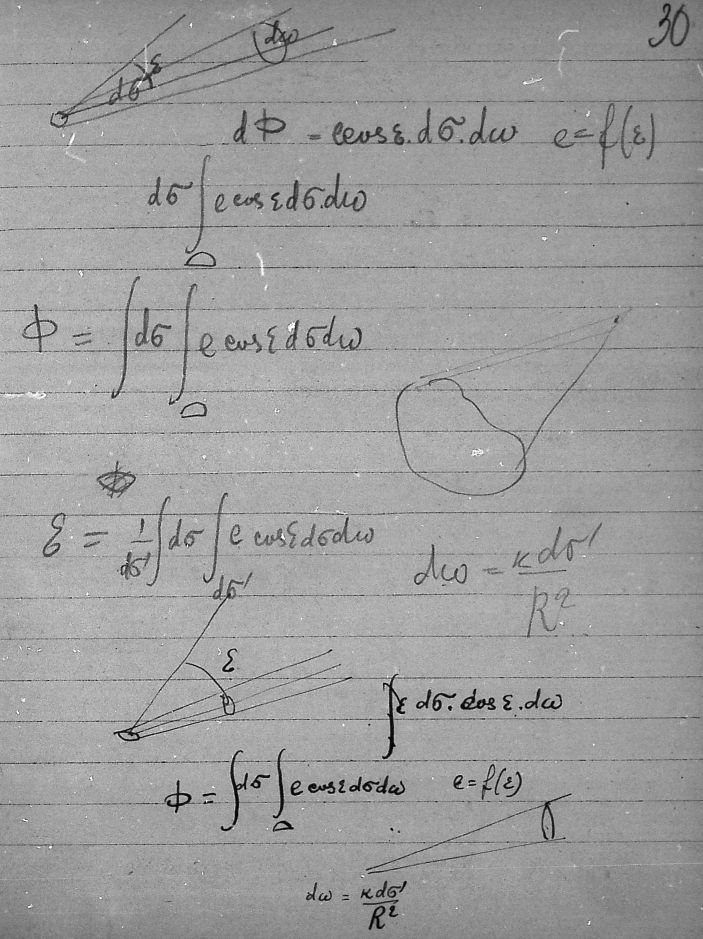 30
dω
ε
dσ
dΦ = e cos ε. dσ. dω e = f(ε)
dσ ∫ e cos ε dσ. dω
Φ = ∫ dσ ∫ e cos ε dσ dω
ℰ = 1/dσ' ∫ dσ ∫ e cos ε dσ dω
dσ'
dω = κ dσ' / R²
ε
∫ ε dσ. cos ε. dω
Φ = ∫ dσ ∫ e cos ε dσ dω e = f(ε)
dω = κ dσ' / R²